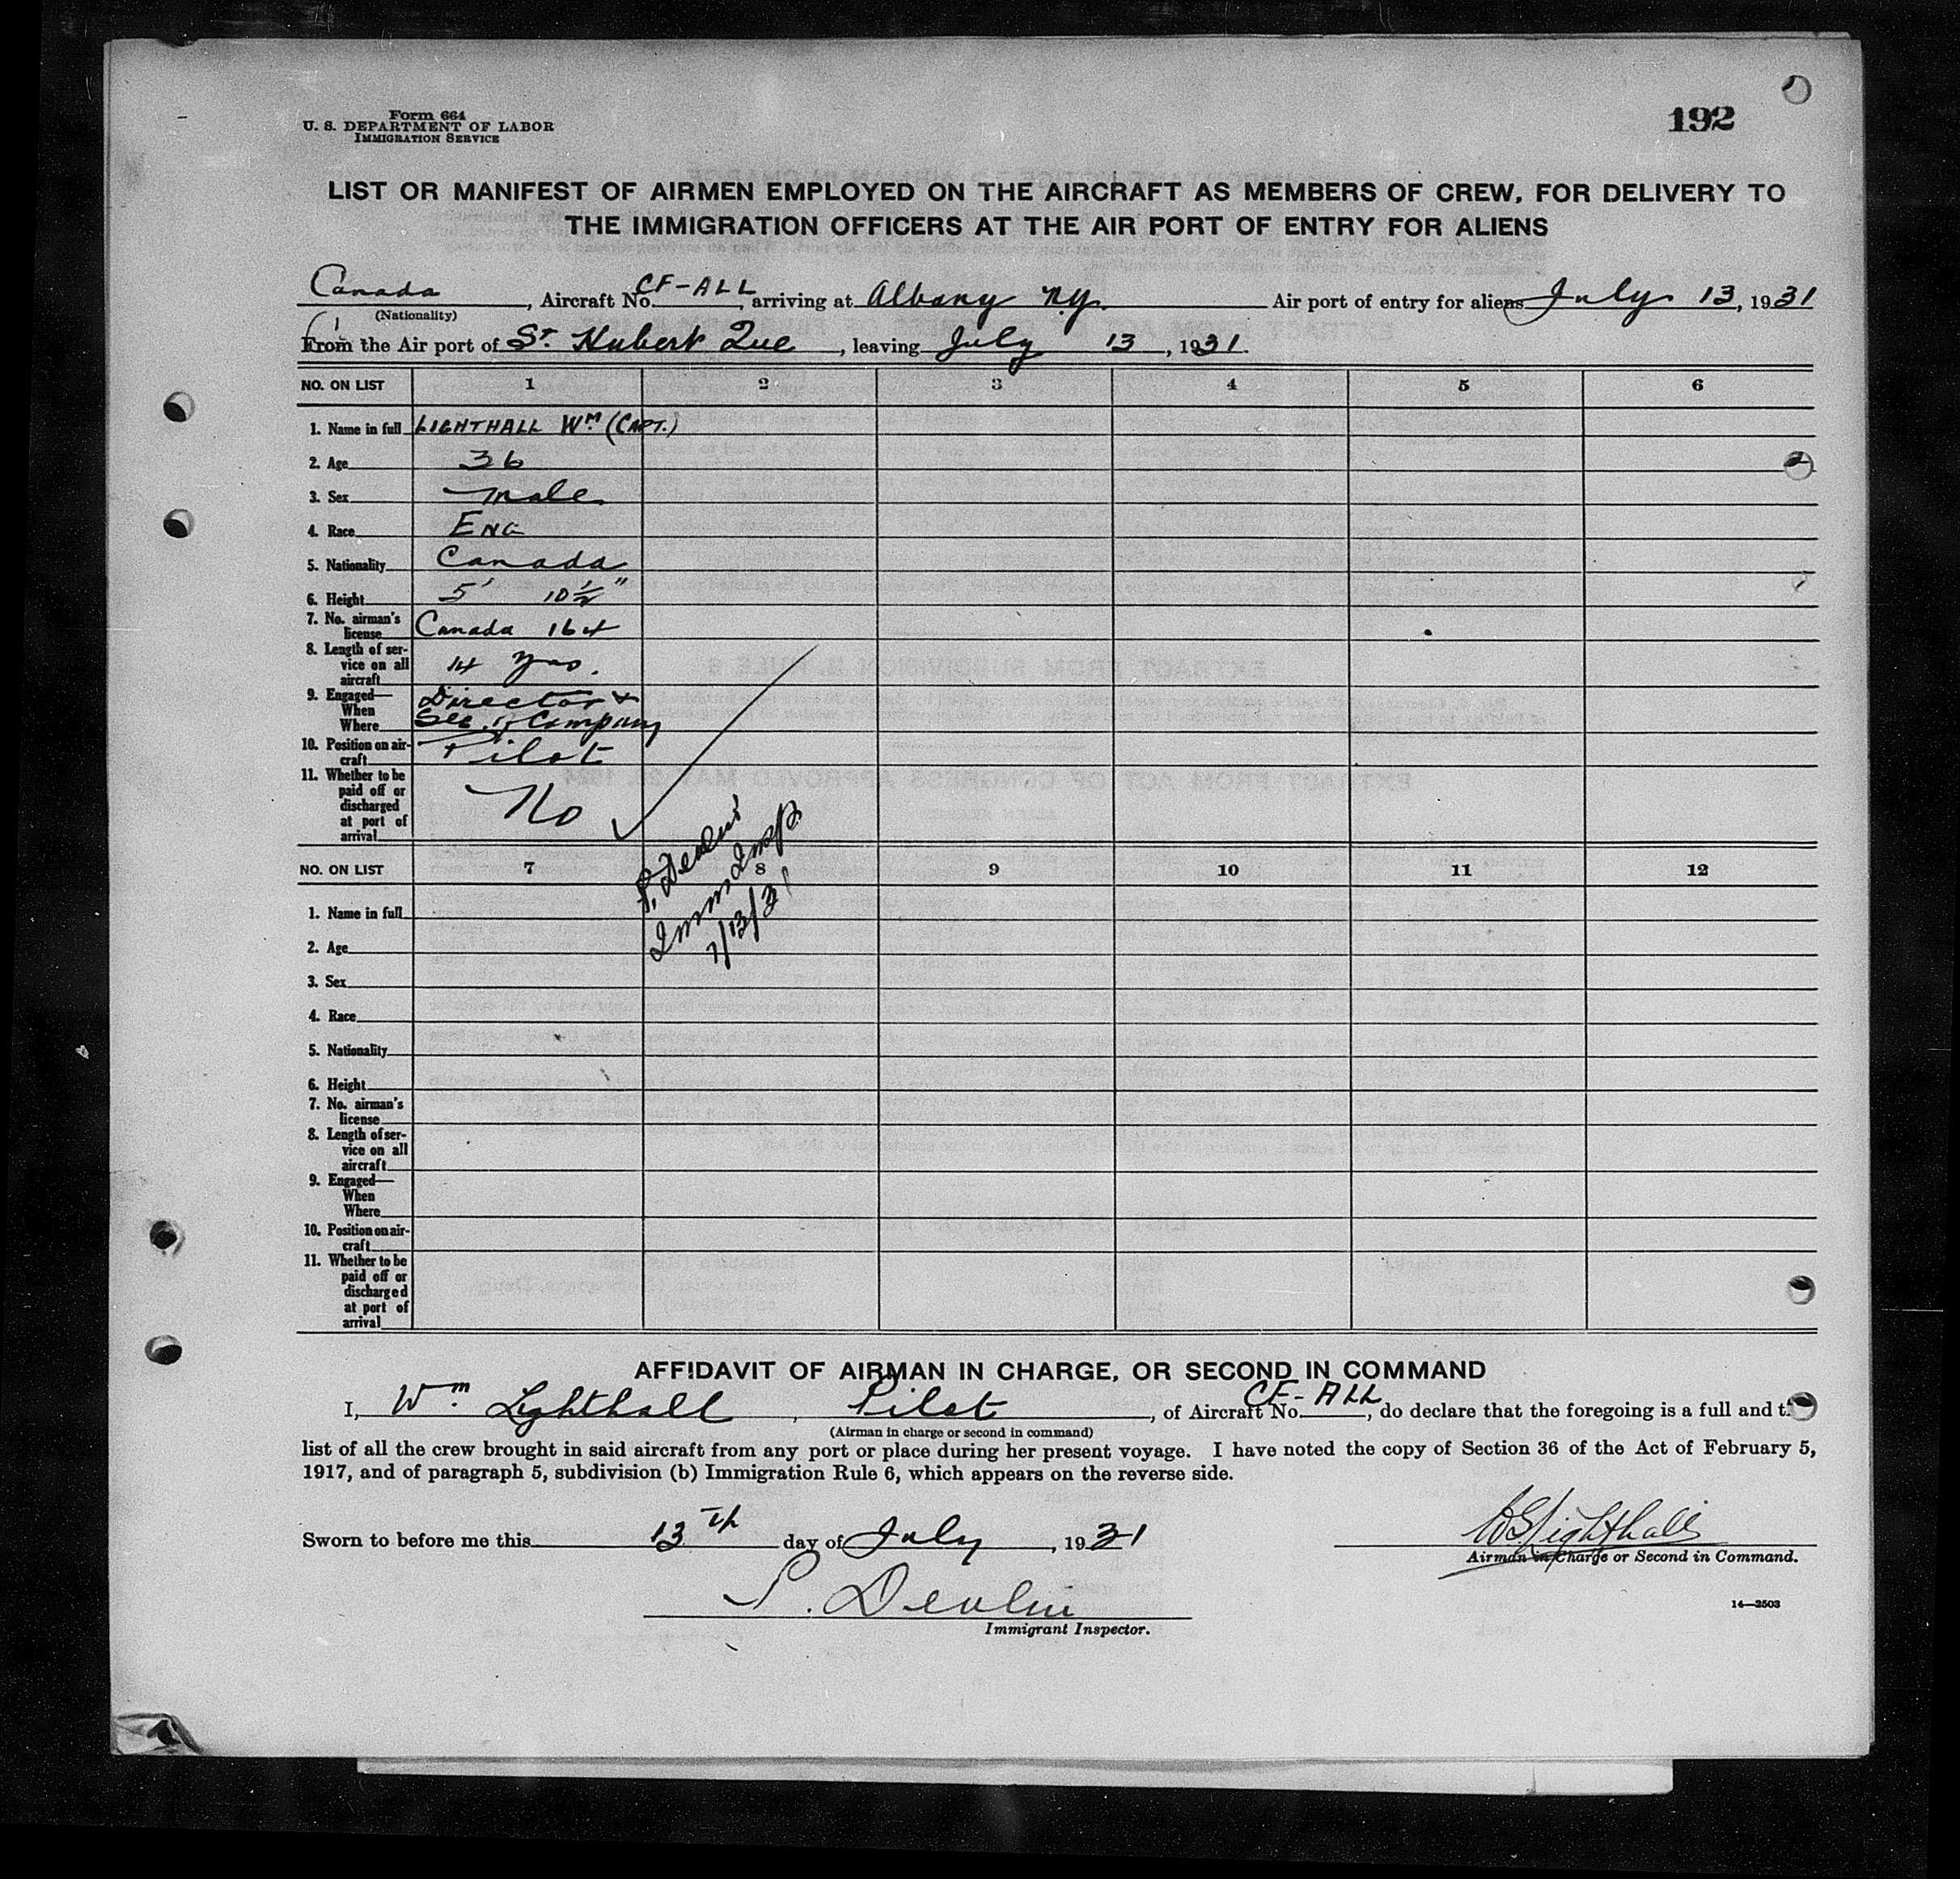 Form 664
U. S. DEPARTMENT OF LABOR
IMMIGRATION SERVICE
192
LIST OR MANIFEST OF AIRMEN EMPLOYED ON THE AIRCRAFT AS MEMBERS OF CREW, FOR DELIVERY TO
THE IMMIGRATION OFFICERS AT THE AIR PORT OF ENTRY FOR ALIENS
Canada, Aircraft No. CF-ALL, arriving at Albany N.Y. Air port of entry for aliens July 13, 1931
(Nationality)
From the Air port of St. Hubert Que, leaving July 13, 1931.
NO. ON LIST 1 2 3 4 5 6
1. Name in full LIGHTHALL Wm (CAPT.)
2. Age 36
3. Sex male
4. Race ENG
5. Nationality Canada
6. Height 5' 10½"
7. No. airman's
license Canada 164
8. Length of ser-
vice on all
aircraft 14 yrs.
9. Engaged— Director &
When
Where Sec. of Company
10. Position on air-
craft Pilot
11. Whether to be
paid off or
discharged
at port of
arrival No
P. Devlin
Imm Insp
7/13/31
NO. ON LIST 7 8 9 10 11 12
1. Name in full
2. Age
3. Sex
4. Race
5. Nationality
6. Height
7. No. airman's
license
8. Length of ser-
vice on all
aircraft
9. Engaged—
When
Where
10. Position on air-
craft
11. Whether to be
paid off or
discharged
at port of
arrival
AFFIDAVIT OF AIRMAN IN CHARGE, OR SECOND IN COMMAND
I, Wm Lighthall, Pilot, of Aircraft No. CF-ALL, do declare that the foregoing is a full and
(Airman in charge or second in command)
list of all the crew brought in said aircraft from any port or place during her present voyage. I have noted the copy of Section 36 of the Act of February 5,
1917, and of paragraph 5, subdivision (b) Immigration Rule 6, which appears on the reverse side.
Sworn to before me this 13th day of July, 1931
WS Lighthall
Airman in Charge or Second in Command.
P. Devlin
Immigrant Inspector.
14—2503